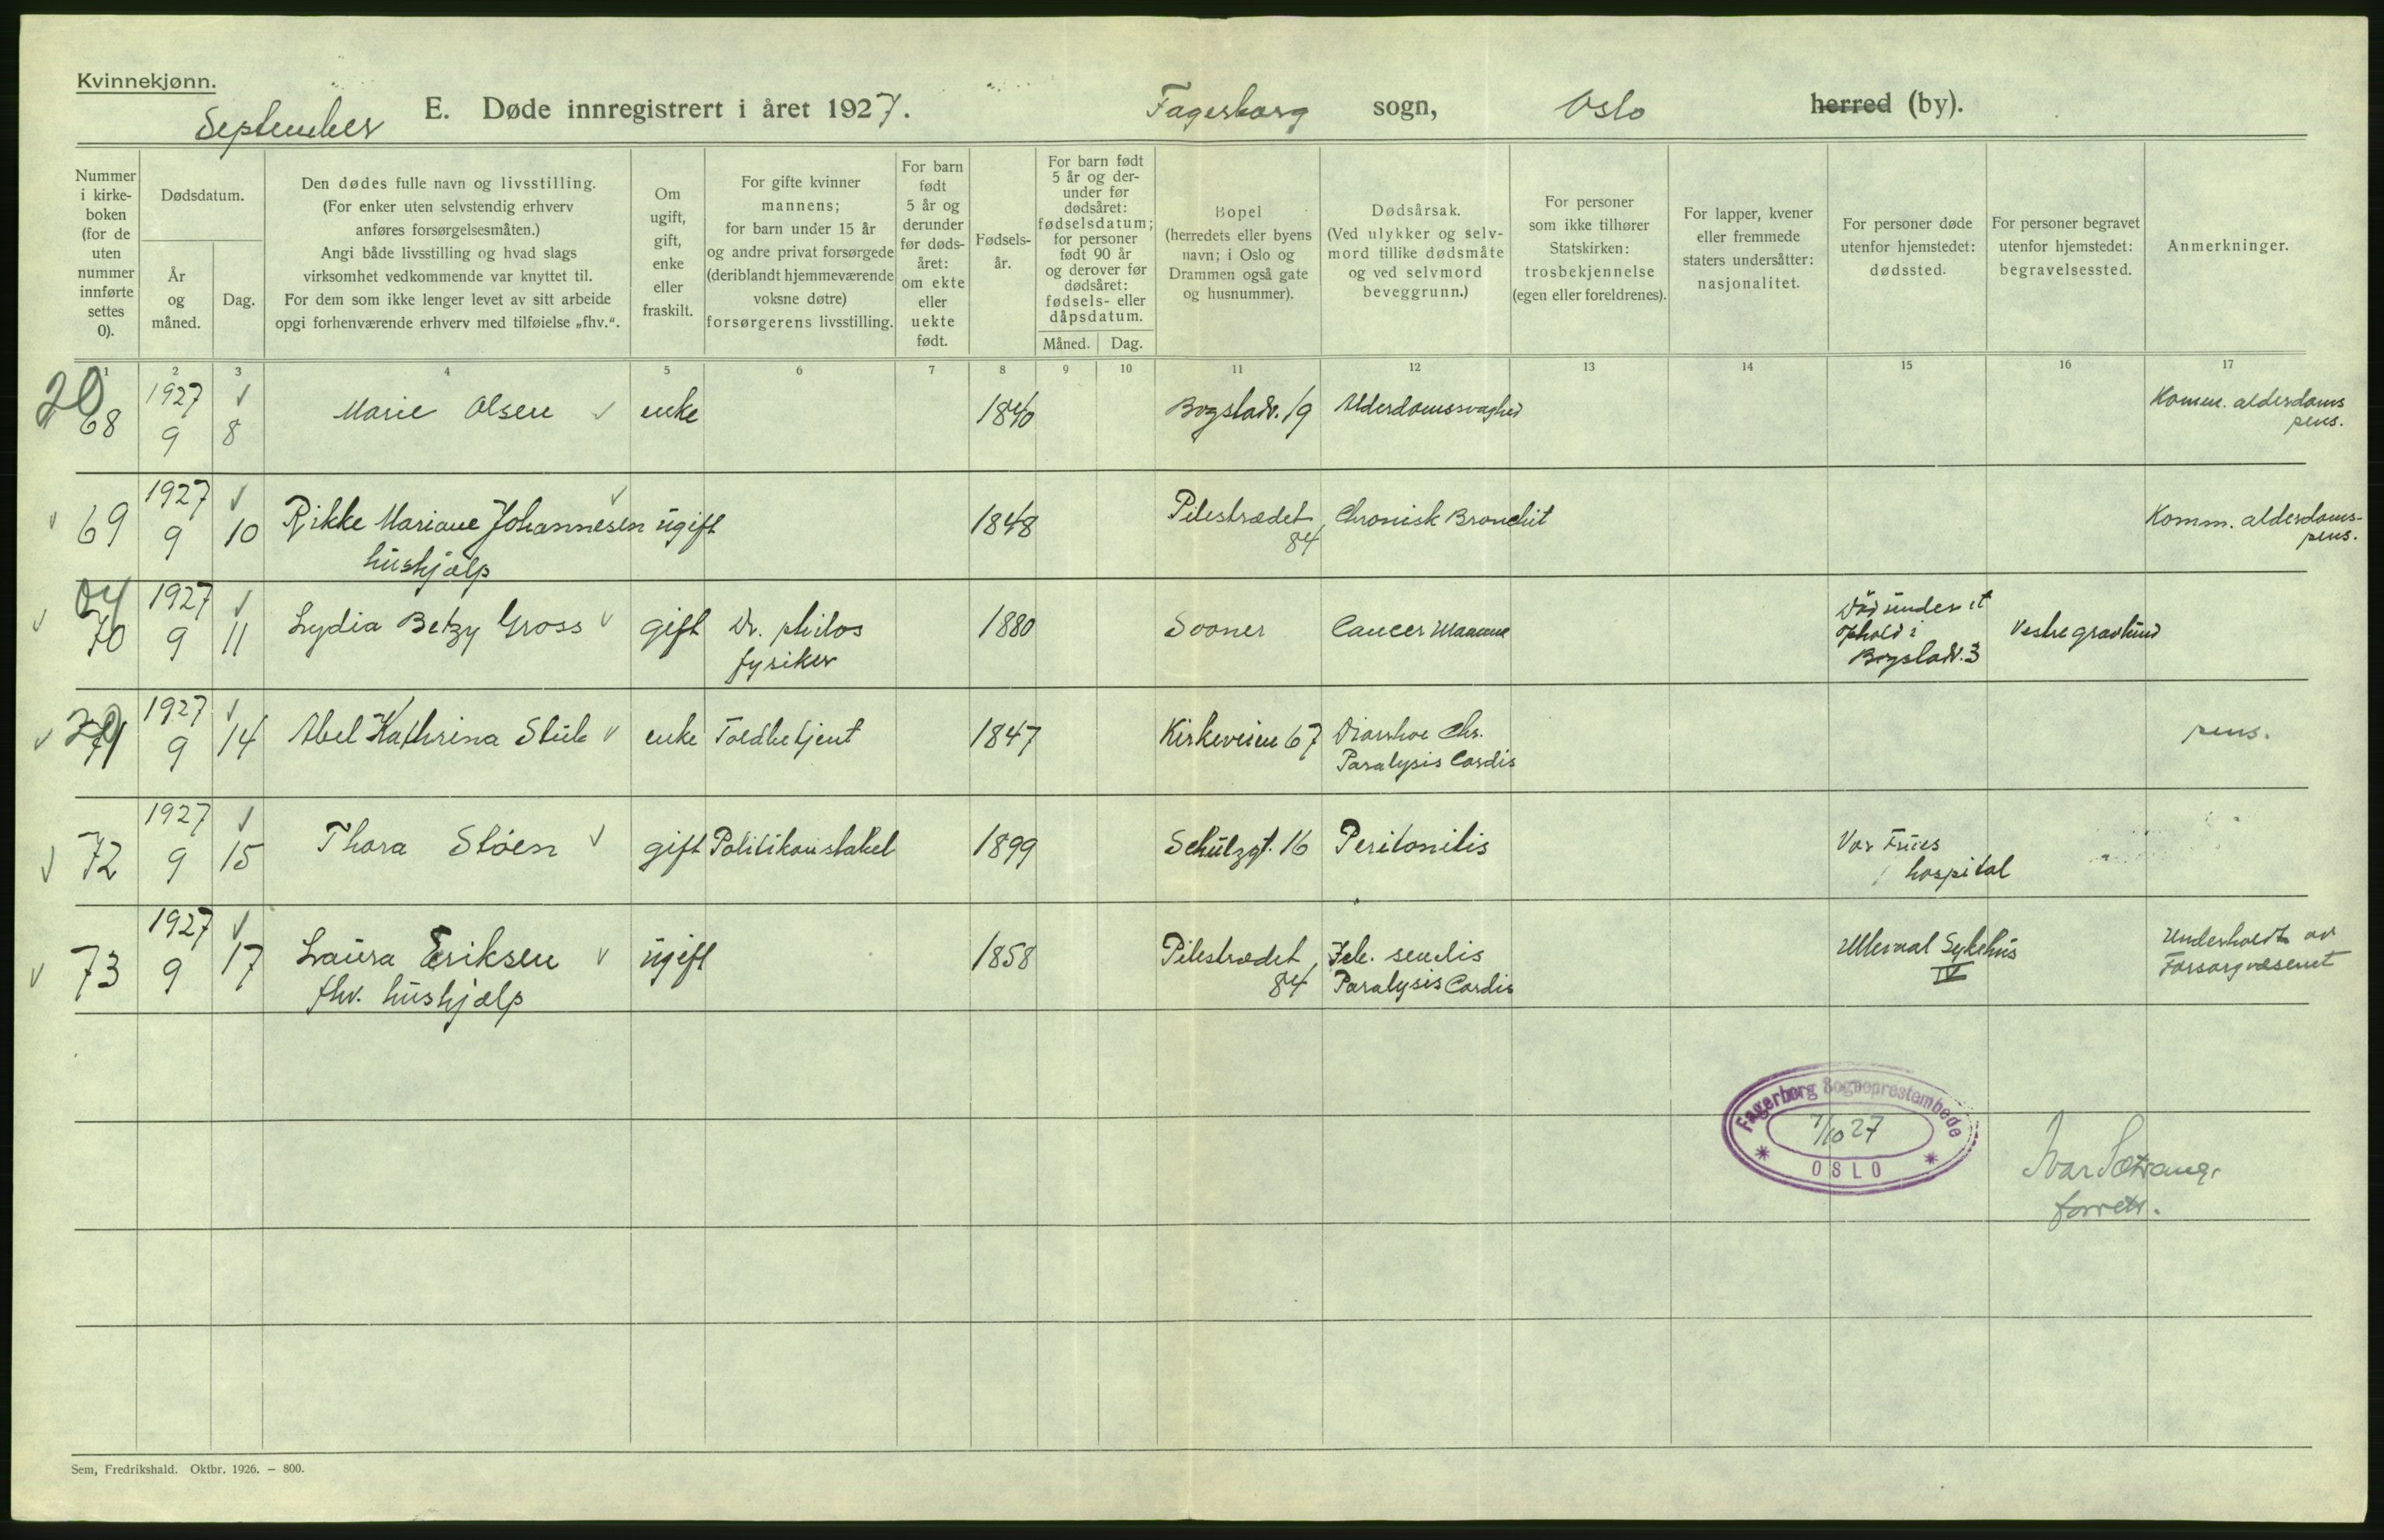 Kvinnekjønn.
September E. Døde innregistrert i året 1927. Fagerborg sogn, Oslo herred (by).
Nummer
i kirke-
boken
(for de
uten
nummer
innførte
settes
0).
Dødsdatum.
År
og
måned.
Dag.
Den dødes fulle navn og livsstilling.
(For enker uten selvstendig erhverv
anføres forsørgelsesmåten.)
Angi både livsstilling og hvad slags
virksomhet vedkommende var knyttet til.
For dem som ikke lenger levet av sitt arbeide
opgi forhenværende erhverv med tilføielse „fhv.“.
Om
ugift,
gift,
enke
eller
fraskilt.
For gifte kvinner
mannens;
for barn under 15 år
og andre privat forsørgede
(deriblandt hjemmeværende
voksne døtre)
forsørgerens livsstilling.
For barn
født
5 år og
derunder
før døds-
året:
om ekte
eller
uekte
født.
Fødsels-
år.
For barn født
5 år og der-
under før
dødsåret:
fødselsdatum;
for personer
født 90 år
og derover før
dødsåret:
fødsels- eller
dåpsdatum.
Måned. Dag.
Bopel
(herredets eller byens
navn; i Oslo og
Drammen også gate
og husnummer).
Dødsårsak.
(Ved ulykker og selv-
mord tillike dødsmåte
og ved selvmord
beveggrunn.)
For personer
som ikke tilhører
Statskirken:
trosbekjennelse
(egen eller foreldrenes).
For lapper, kvener
eller fremmede
staters undersåtter:
nasjonalitet.
For personer døde
utenfor hjemstedet:
dødssted.
For personer begravet
utenfor hjemstedet:
begravelsessted.
Anmerkninger.
1 2 3 4 5 6 7 8 9 10 11 12 13 14 15 16 17
20
68 1927 9 8 Marie Olsen enke 1840 Bogstadv. 19 Alderdomssvaghed Komm. alderdoms
pens.
69 1927 9 10 Rikke Mariane Johannesen ugift 1848 Pilestrædet Chronisk Bronchit Komm. alderdoms-
hushjælp 84 pens.
70 1927 9 11 Lydia Betzy Gross gift Dr. philos 1880 Sooner Cancer Mammae Død under et
fysiker ophold i
Bogstadv. 3
Vestre gravlund
71 1927 9 14 Abel Kathrina Stub enke Toldbetjent 1847 Kirkeveien 67 Diarrhoe Chr. pens.
Paralysis Cordis
72 1927 9 15 Thora Støen gift Politikonstabel 1899 Schulzgt. 16 Peritonitis Vor Frues
hospital
73 1927 9 17 Laura Eriksen ugift 1858 Pilestrædet senilis Ulleval Sykehus Underholdt av
fhv. hushjælp 84 Paralysis Cordis IV Forsorgvæsenet
Fagerborg Sogneprestembede
7/10 27
OSLO
Ivar Sætrang.
Sem, Fredrikshald. Oktbr. 1926. – 800.